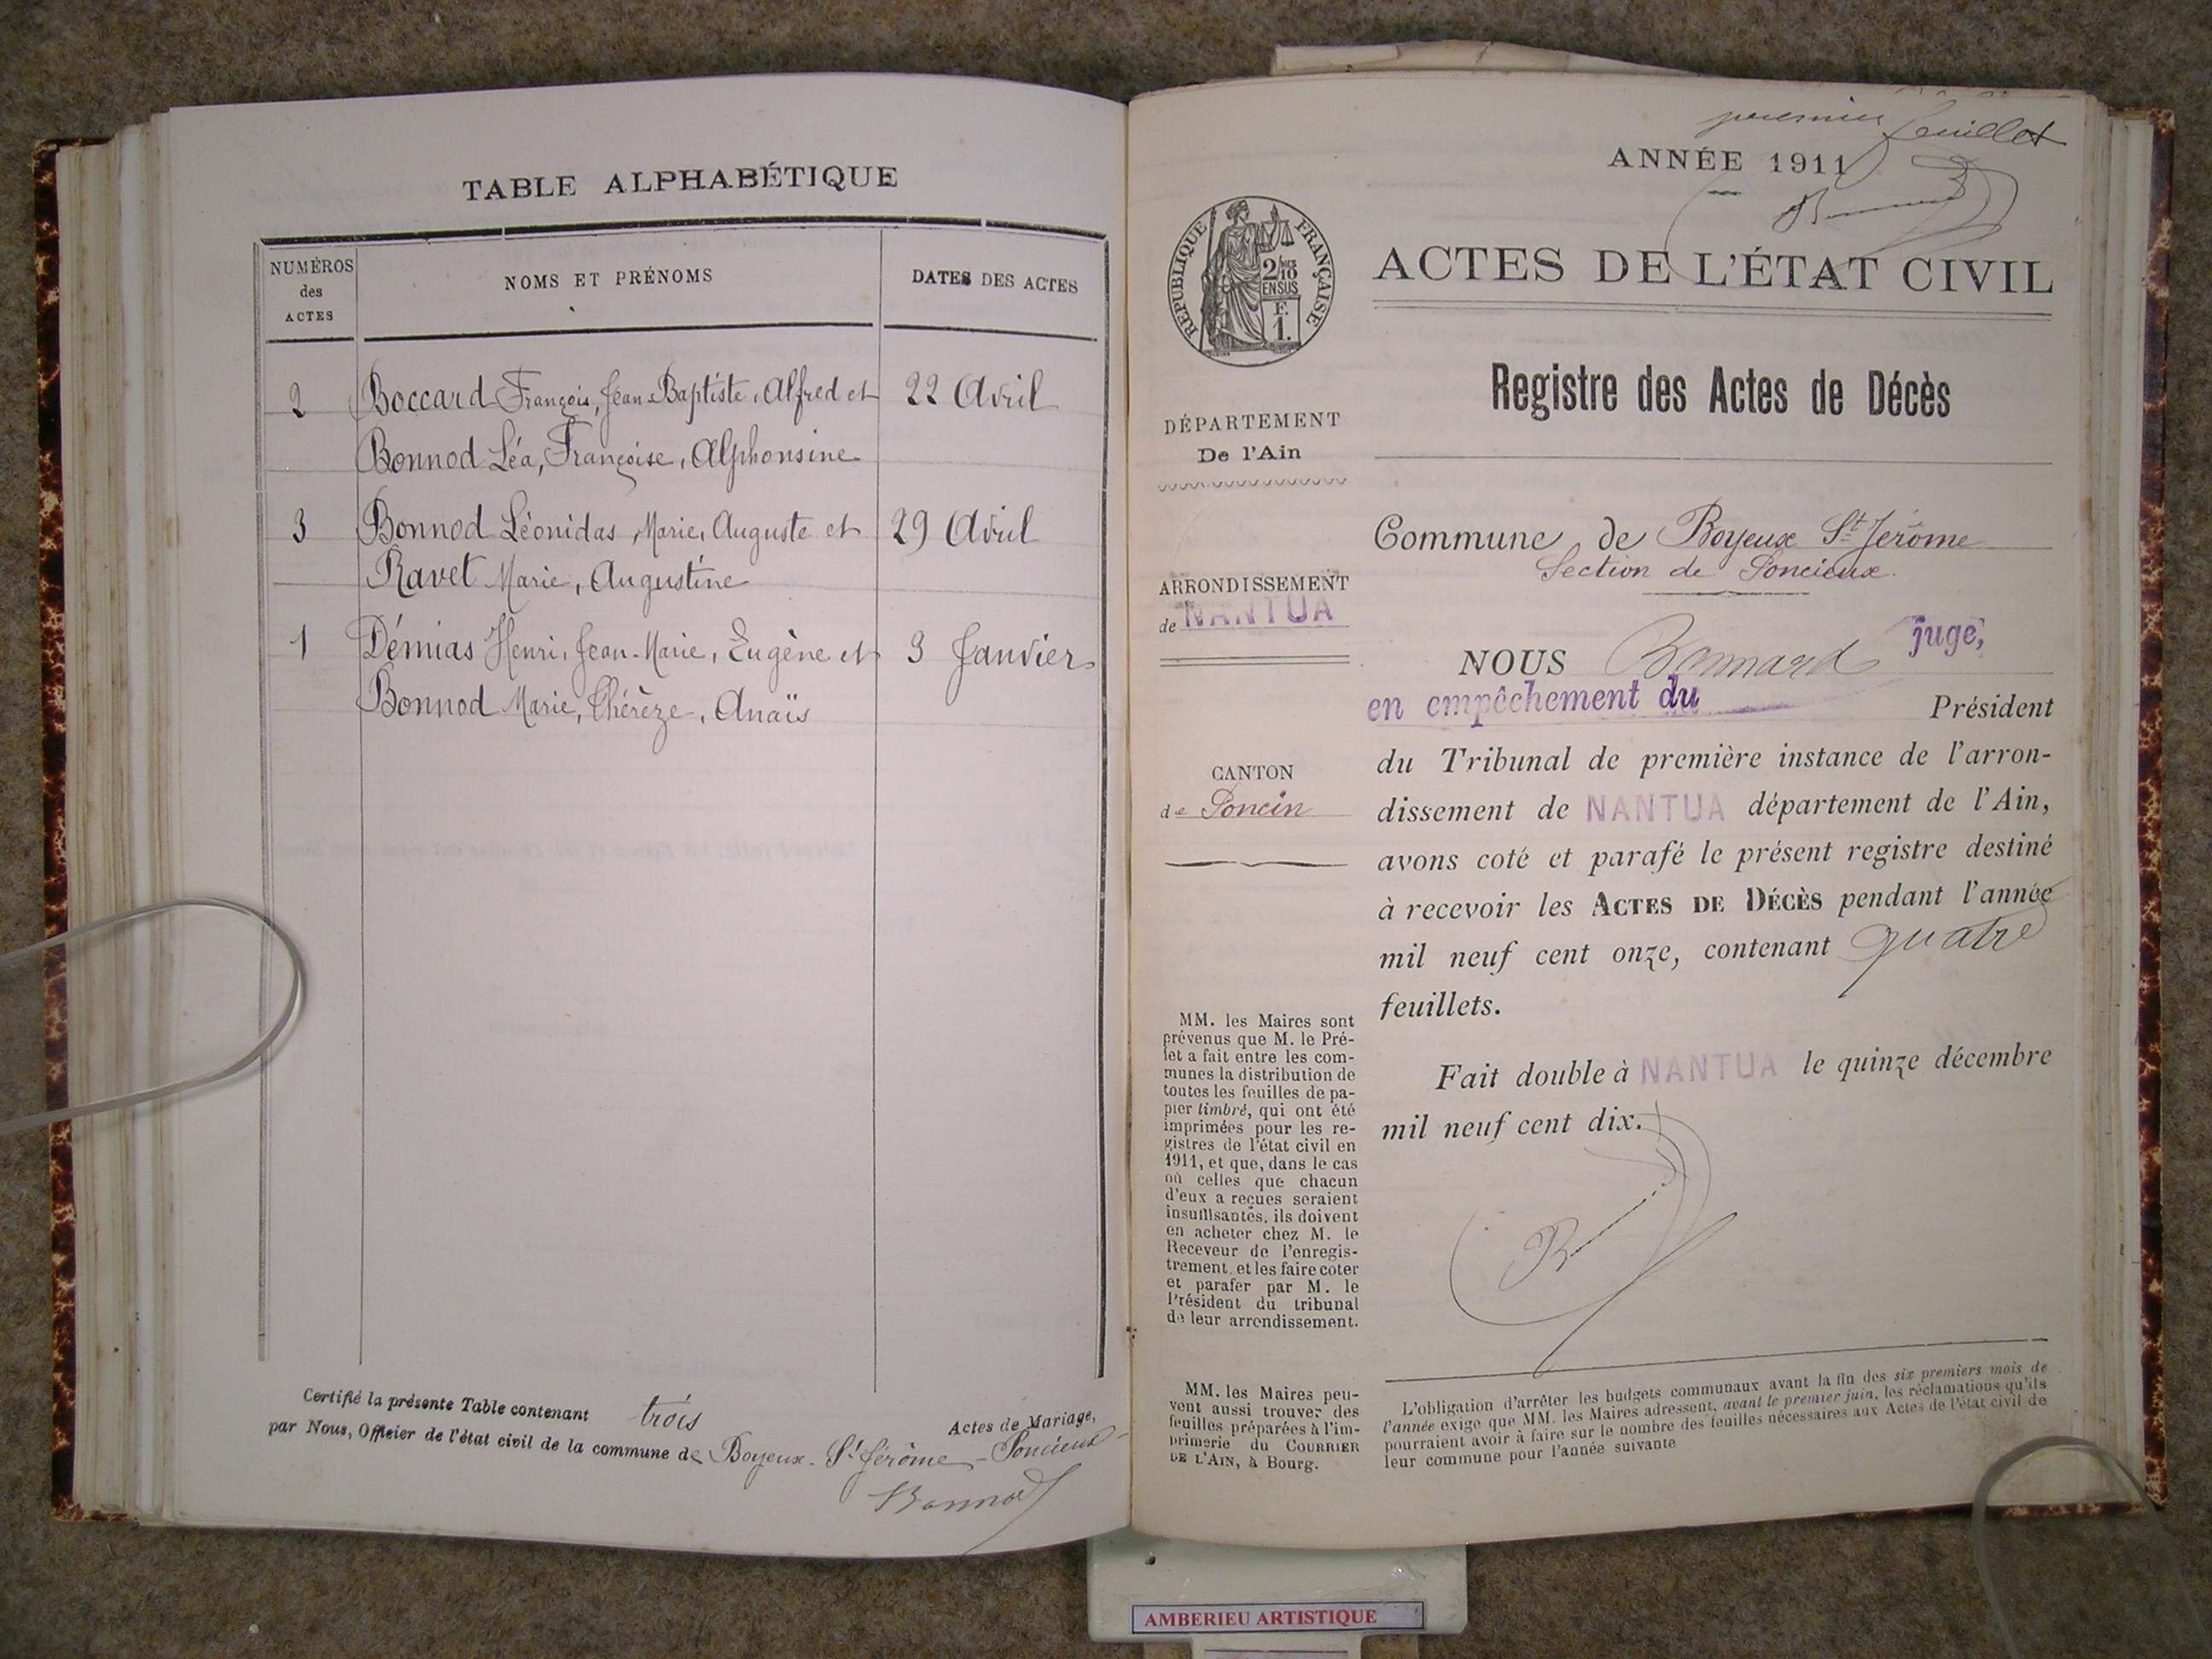 TABLE ALPHABÉTIQUE
NUMÉROS
des
ACTES
NOMS ET PRÉNOMS
DATES DES ACTES
2 Boccard François, Jean-Baptiste, Alfred et 22 Avril
Bonnod Léa, Françoise, Alphonsine
3 Bonnod Léonidas, Marie, Auguste et 29 Avril
Ravet Marie, Augustine
1 Démias Henri, Jean-Marie, Eugène et 3 Janvier
Bonnod Marie, Thérèze, Anaïs
Certifié la présente Table contenant trois Actes de Mariage,
par Nous, Officier de l'état civil de la commune de Boyeux-St Jérôme - Poncieux
Bonnod
premier feuillet
ANNÉE 1911
RÉPUBLIQUE FRANÇAISE
2/10 MES
EN SUS
F.
1.
ACTES DE L'ÉTAT CIVIL
Registre des Actes de Décès
DÉPARTEMENT
De l'Ain
ARRONDISSEMENT
de NANTUA
CANTON
de Poncin
Commune de Boyeux St Jérôme
Section de Poncieux.
NOUS Bonnard juge,
en empêchement du Président
du Tribunal de première instance de l'arron-
dissement de NANTUA département de l'Ain,
avons coté et parafé le présent registre destiné
à recevoir les ACTES DE DÉCÈS pendant l'année
mil neuf cent onze, contenant quatre
feuillets.
Fait double à NANTUA le quinze décembre
mil neuf cent dix.
MM. les Maires sont
prévenus que M. le Pré-
fet a fait entre les com-
munes la distribution de
toutes les feuilles de pa-
pier timbré, qui ont été
imprimées pour les re-
gistres de l'état civil en
1911, et que, dans le cas
où celles que chacun
d'eux a reçues seraient
insuffisantes, ils doivent
en acheter chez M. le
Receveur de l'enregis-
trement, et les faire coter
et parafer par M. le
Président du tribunal
de leur arrondissement.
MM. les Maires peu-
vent aussi trouver des
feuilles préparées à l'im-
primerie du COURRIER
DE L'AIN, à Bourg.
L'obligation d'arrêter les budgets communaux avant la fin des six premiers mois de
l'année exige que MM. les Maires adressent, avant le premier juin, les réclamations qu'ils
pourraient avoir à faire sur le nombre des feuilles nécessaires aux Actes de l'état civil de
leur commune pour l'année suivante
AMBERIEU ARTISTIQUE